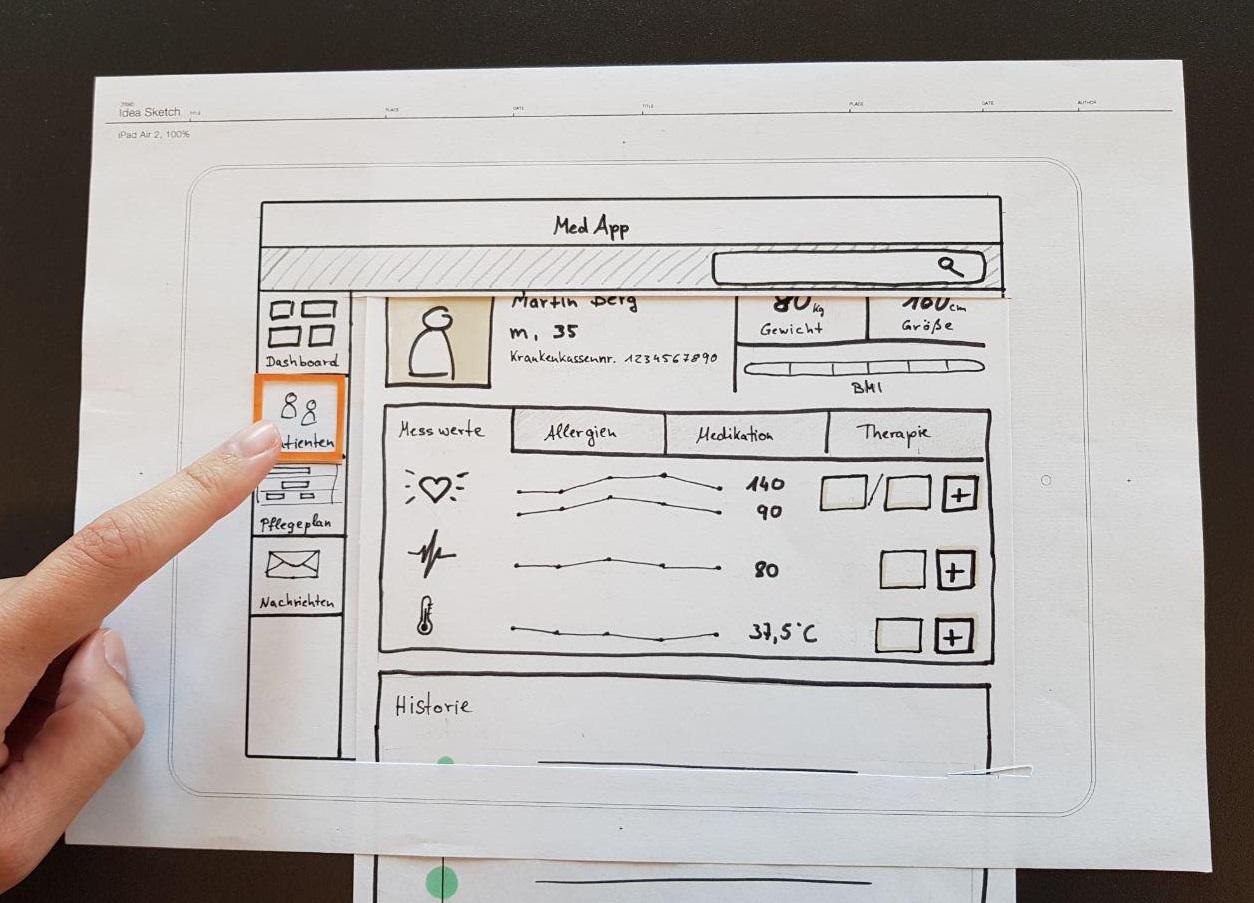 Idea Sketch
TITLE
PLACE
DATE
TITLE
PLACE
DATE
AUTHOR
iPad Air 2, 100%
Med App
Dashboard
tienten
Pflegeplan
Nachrichten
Martin Berg
m, 35
Krankenkassennr. 1234567890
80 kg
Gewicht
180 cm
Größe
BMI
Messwerte
Allergien
Medikation
Therapie
140
90
/
+
80
+
37,5°C
+
Historie